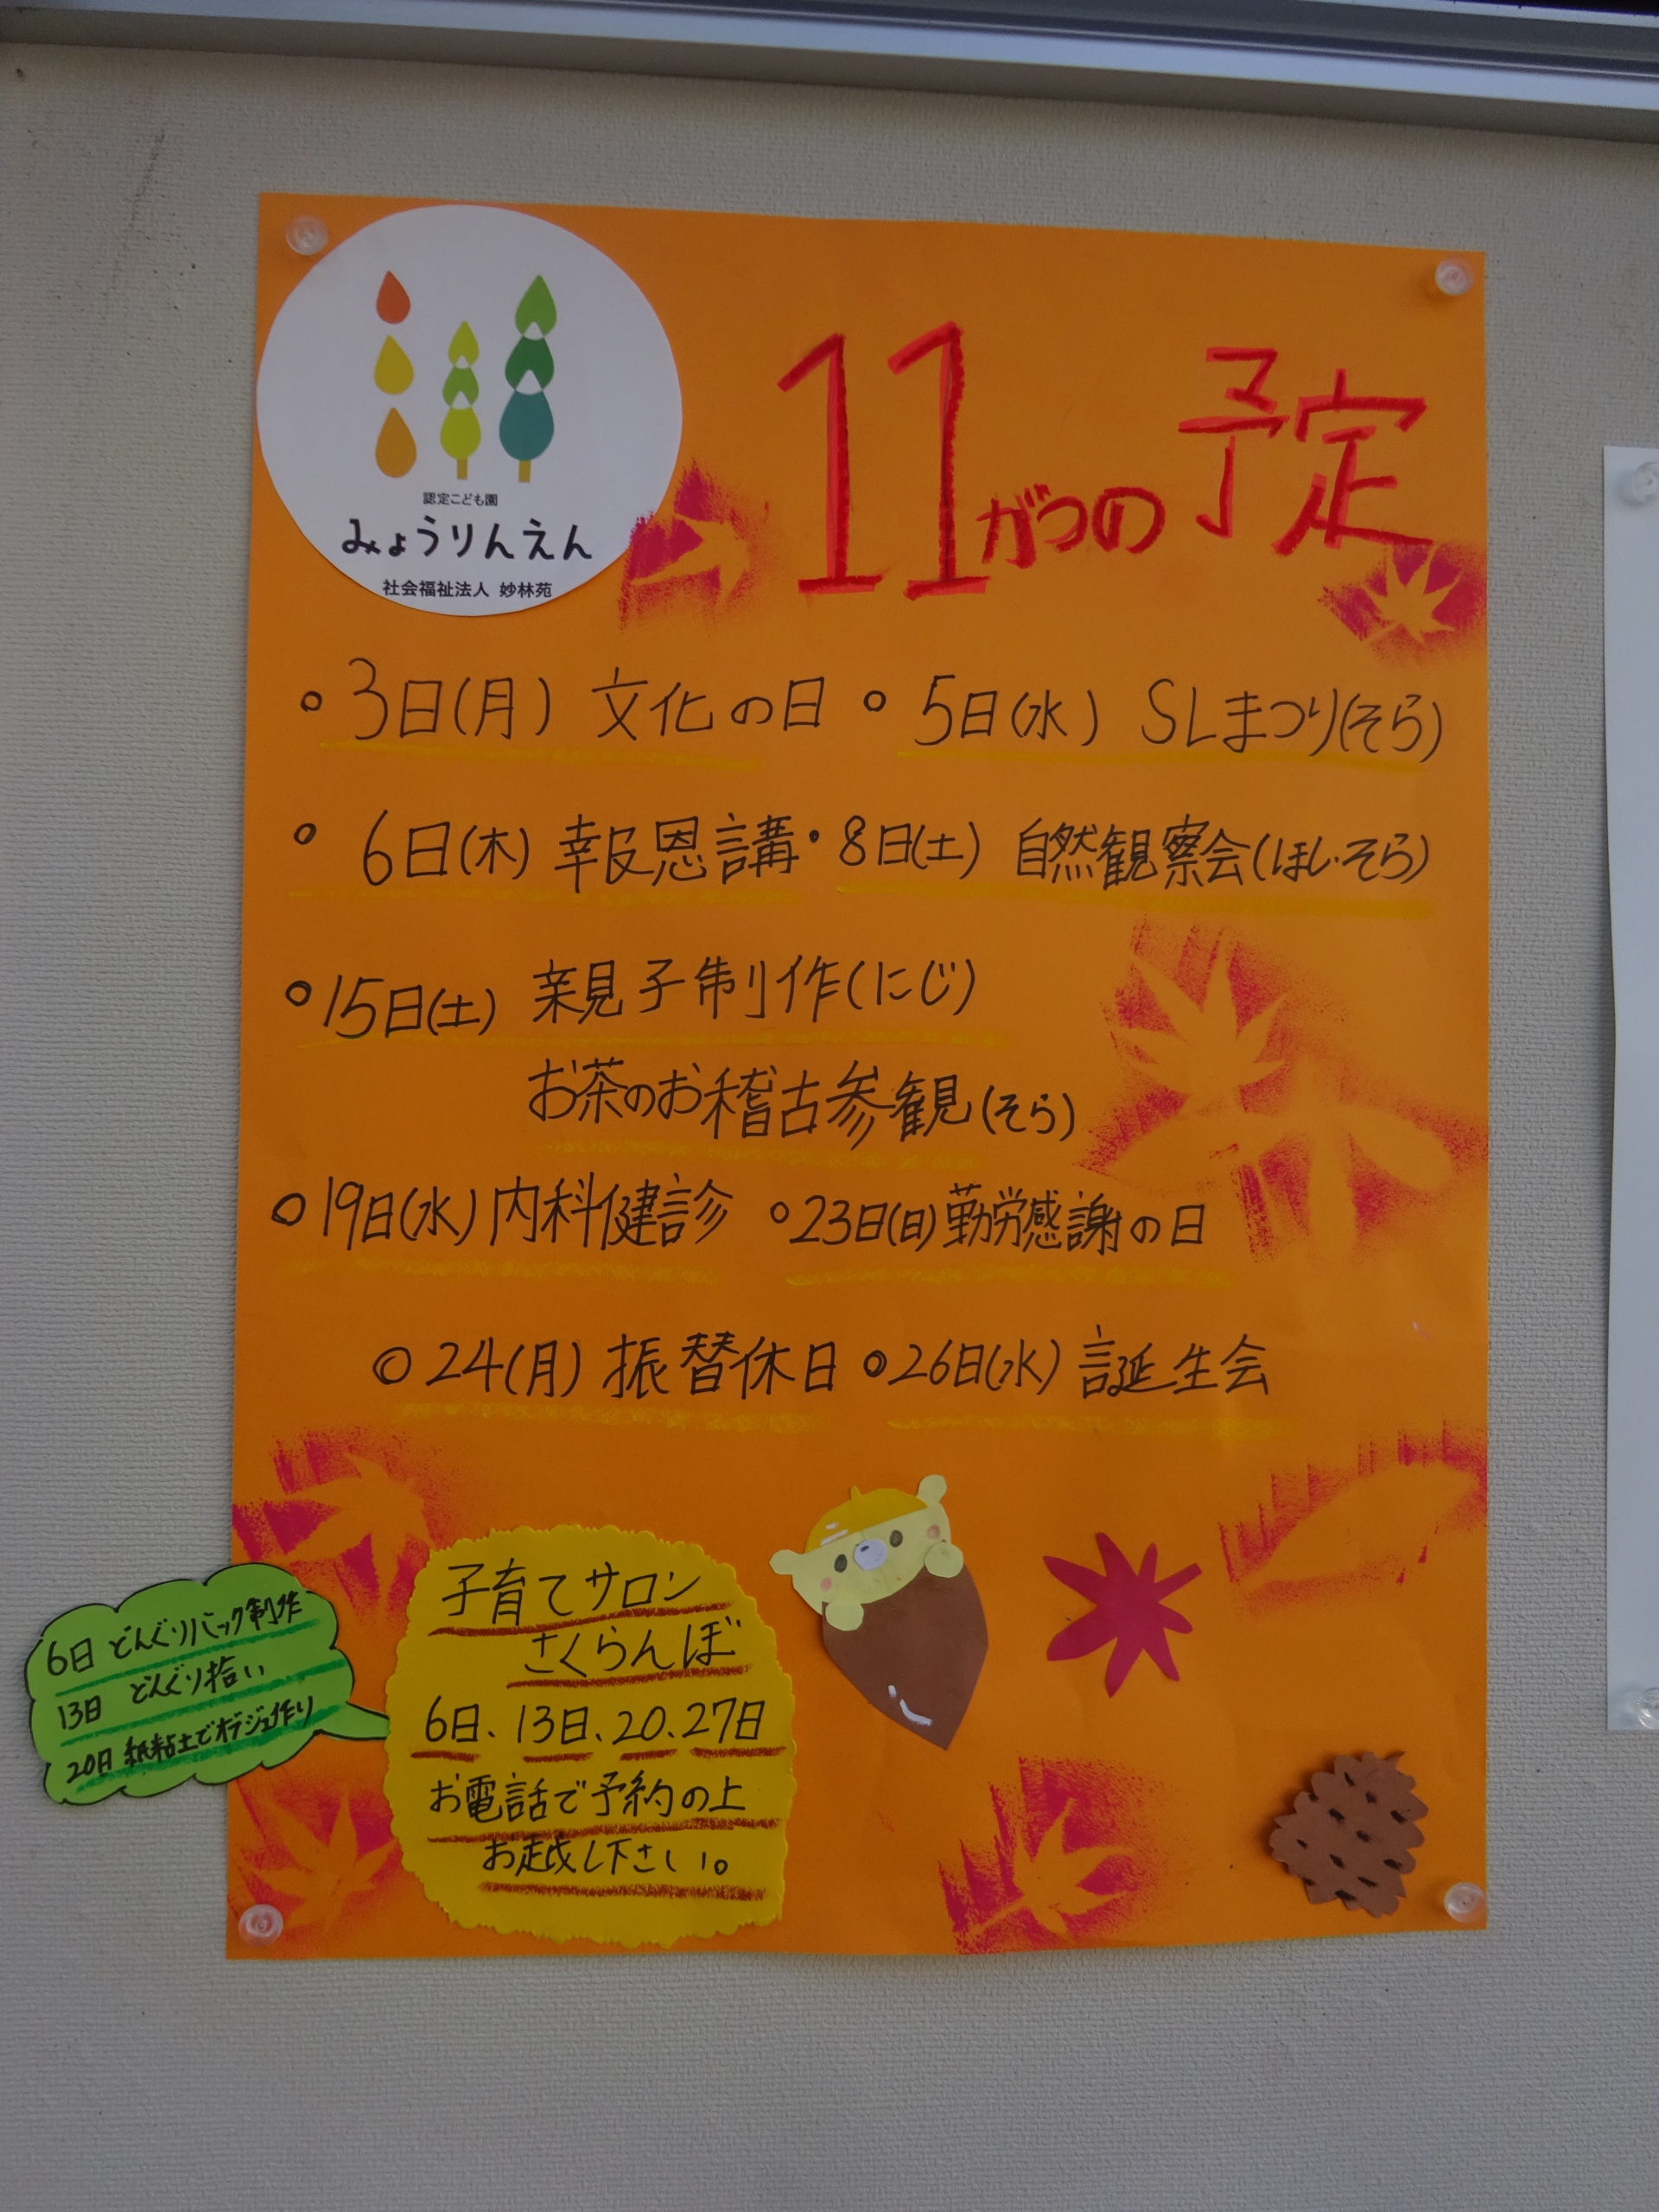 認定こども園
みょうりんえん
社会福祉法人 妙林苑
11がつの予定
○3日(月) 文化の日 ○5日(水) SLまつり(そら)
○6日(木) 報恩講・8日(土) 自然観察会(ほし・そら)
○15日(土) 親子制作(にじ)
お茶のお稽古参観(そら)
○19日(水)内科健診 ○23日(日)勤労感謝の日
◎24(月) 振替休日 ○26日(水) 誕生会
子育てサロン
さくらんぼ
6日、13日、20、27日
お電話で予約の上
お越し下さい。
6日 どんぐりバック制作
13日 どんぐり拾い
20日 紙粘土でオブジェ作り